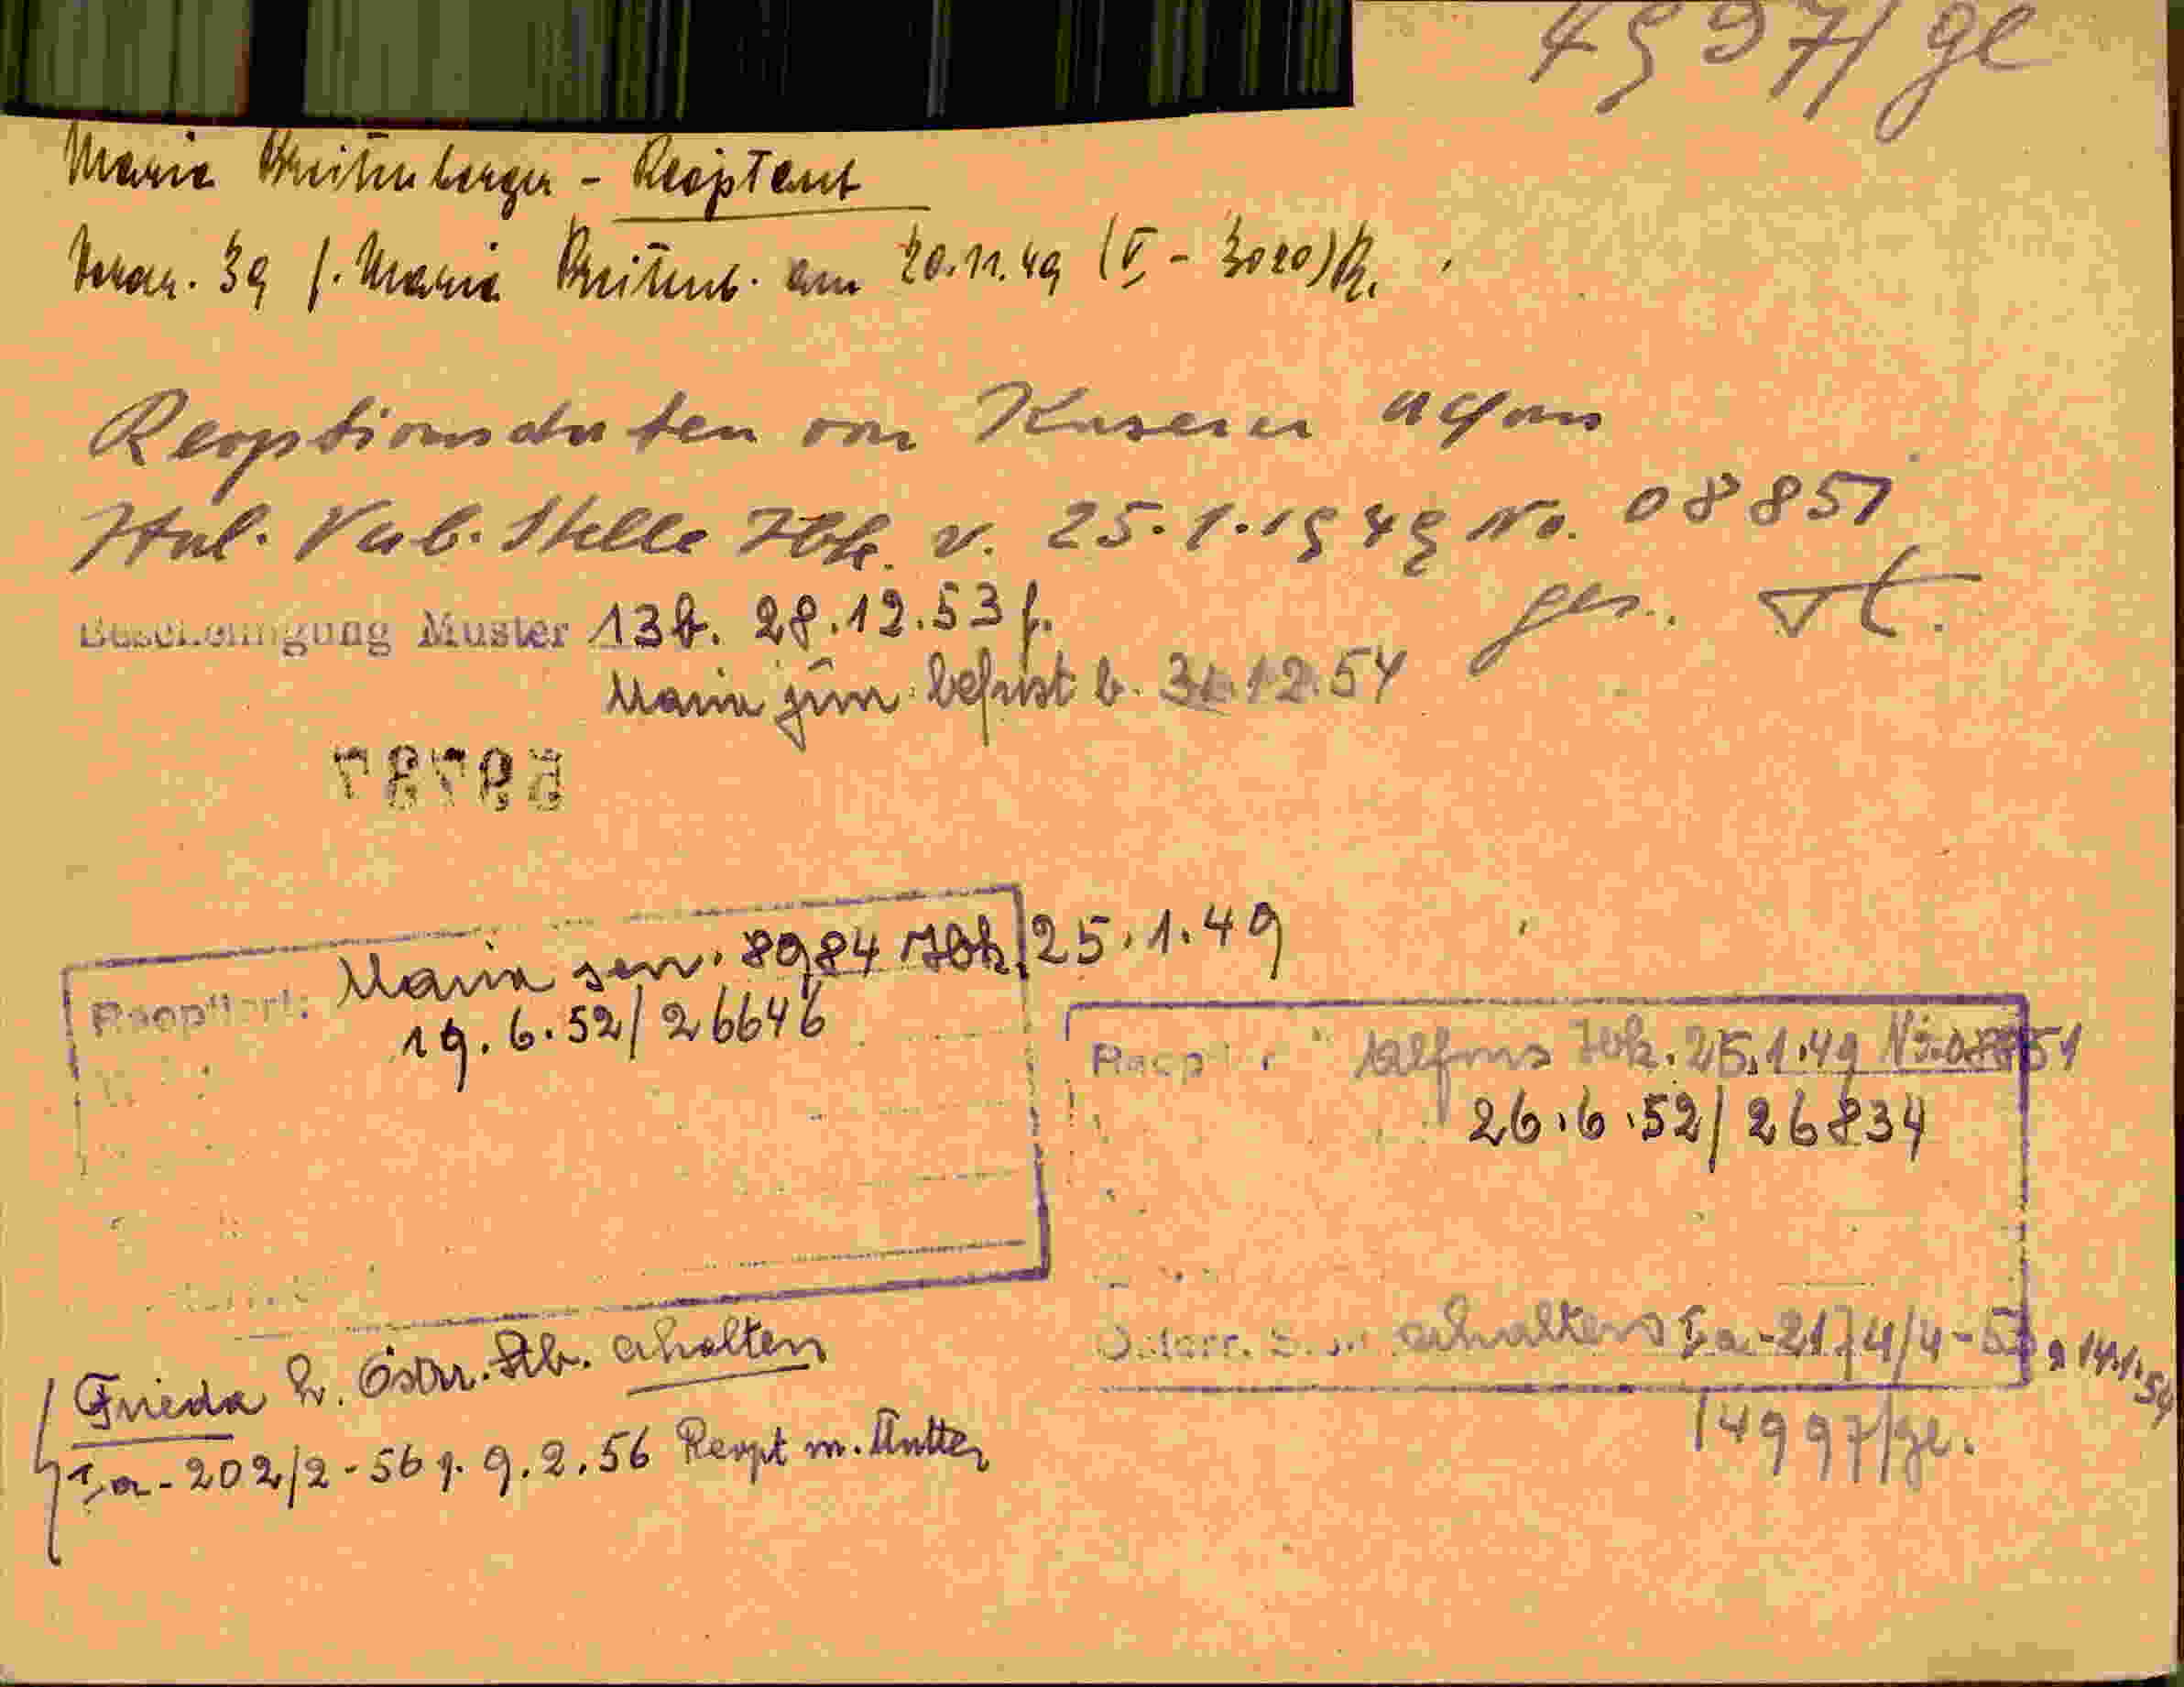 4997/ge
Maria Breitenberger - Reoptant
Veran. 39 f. Maria Breitenb. am 20.11.49 (V - 3020)
Reoptionsdaten von Kaserer Alfons
Ital. Verb. Stelle Ibk. v. 25.1.1949 No. 08851
ges.
Bescheinigung Muster 13b. 28.12.53 f.
Maria jun. befrist b. 31.12.54
Reoptiert: Maria sen. 8984 Ibk. 25.1.49
19.6.52/26646
Reopt Alfons Ibk. 25.1.49 No. 08851
26.6.52/26834
Österr. erhalten Ia-2174/4-53 14.1.54
14997/ge.
Frieda h. Östrr. Stb. erhalten
Ia-202/2-56 9.2.56 Reopt m. Mutter